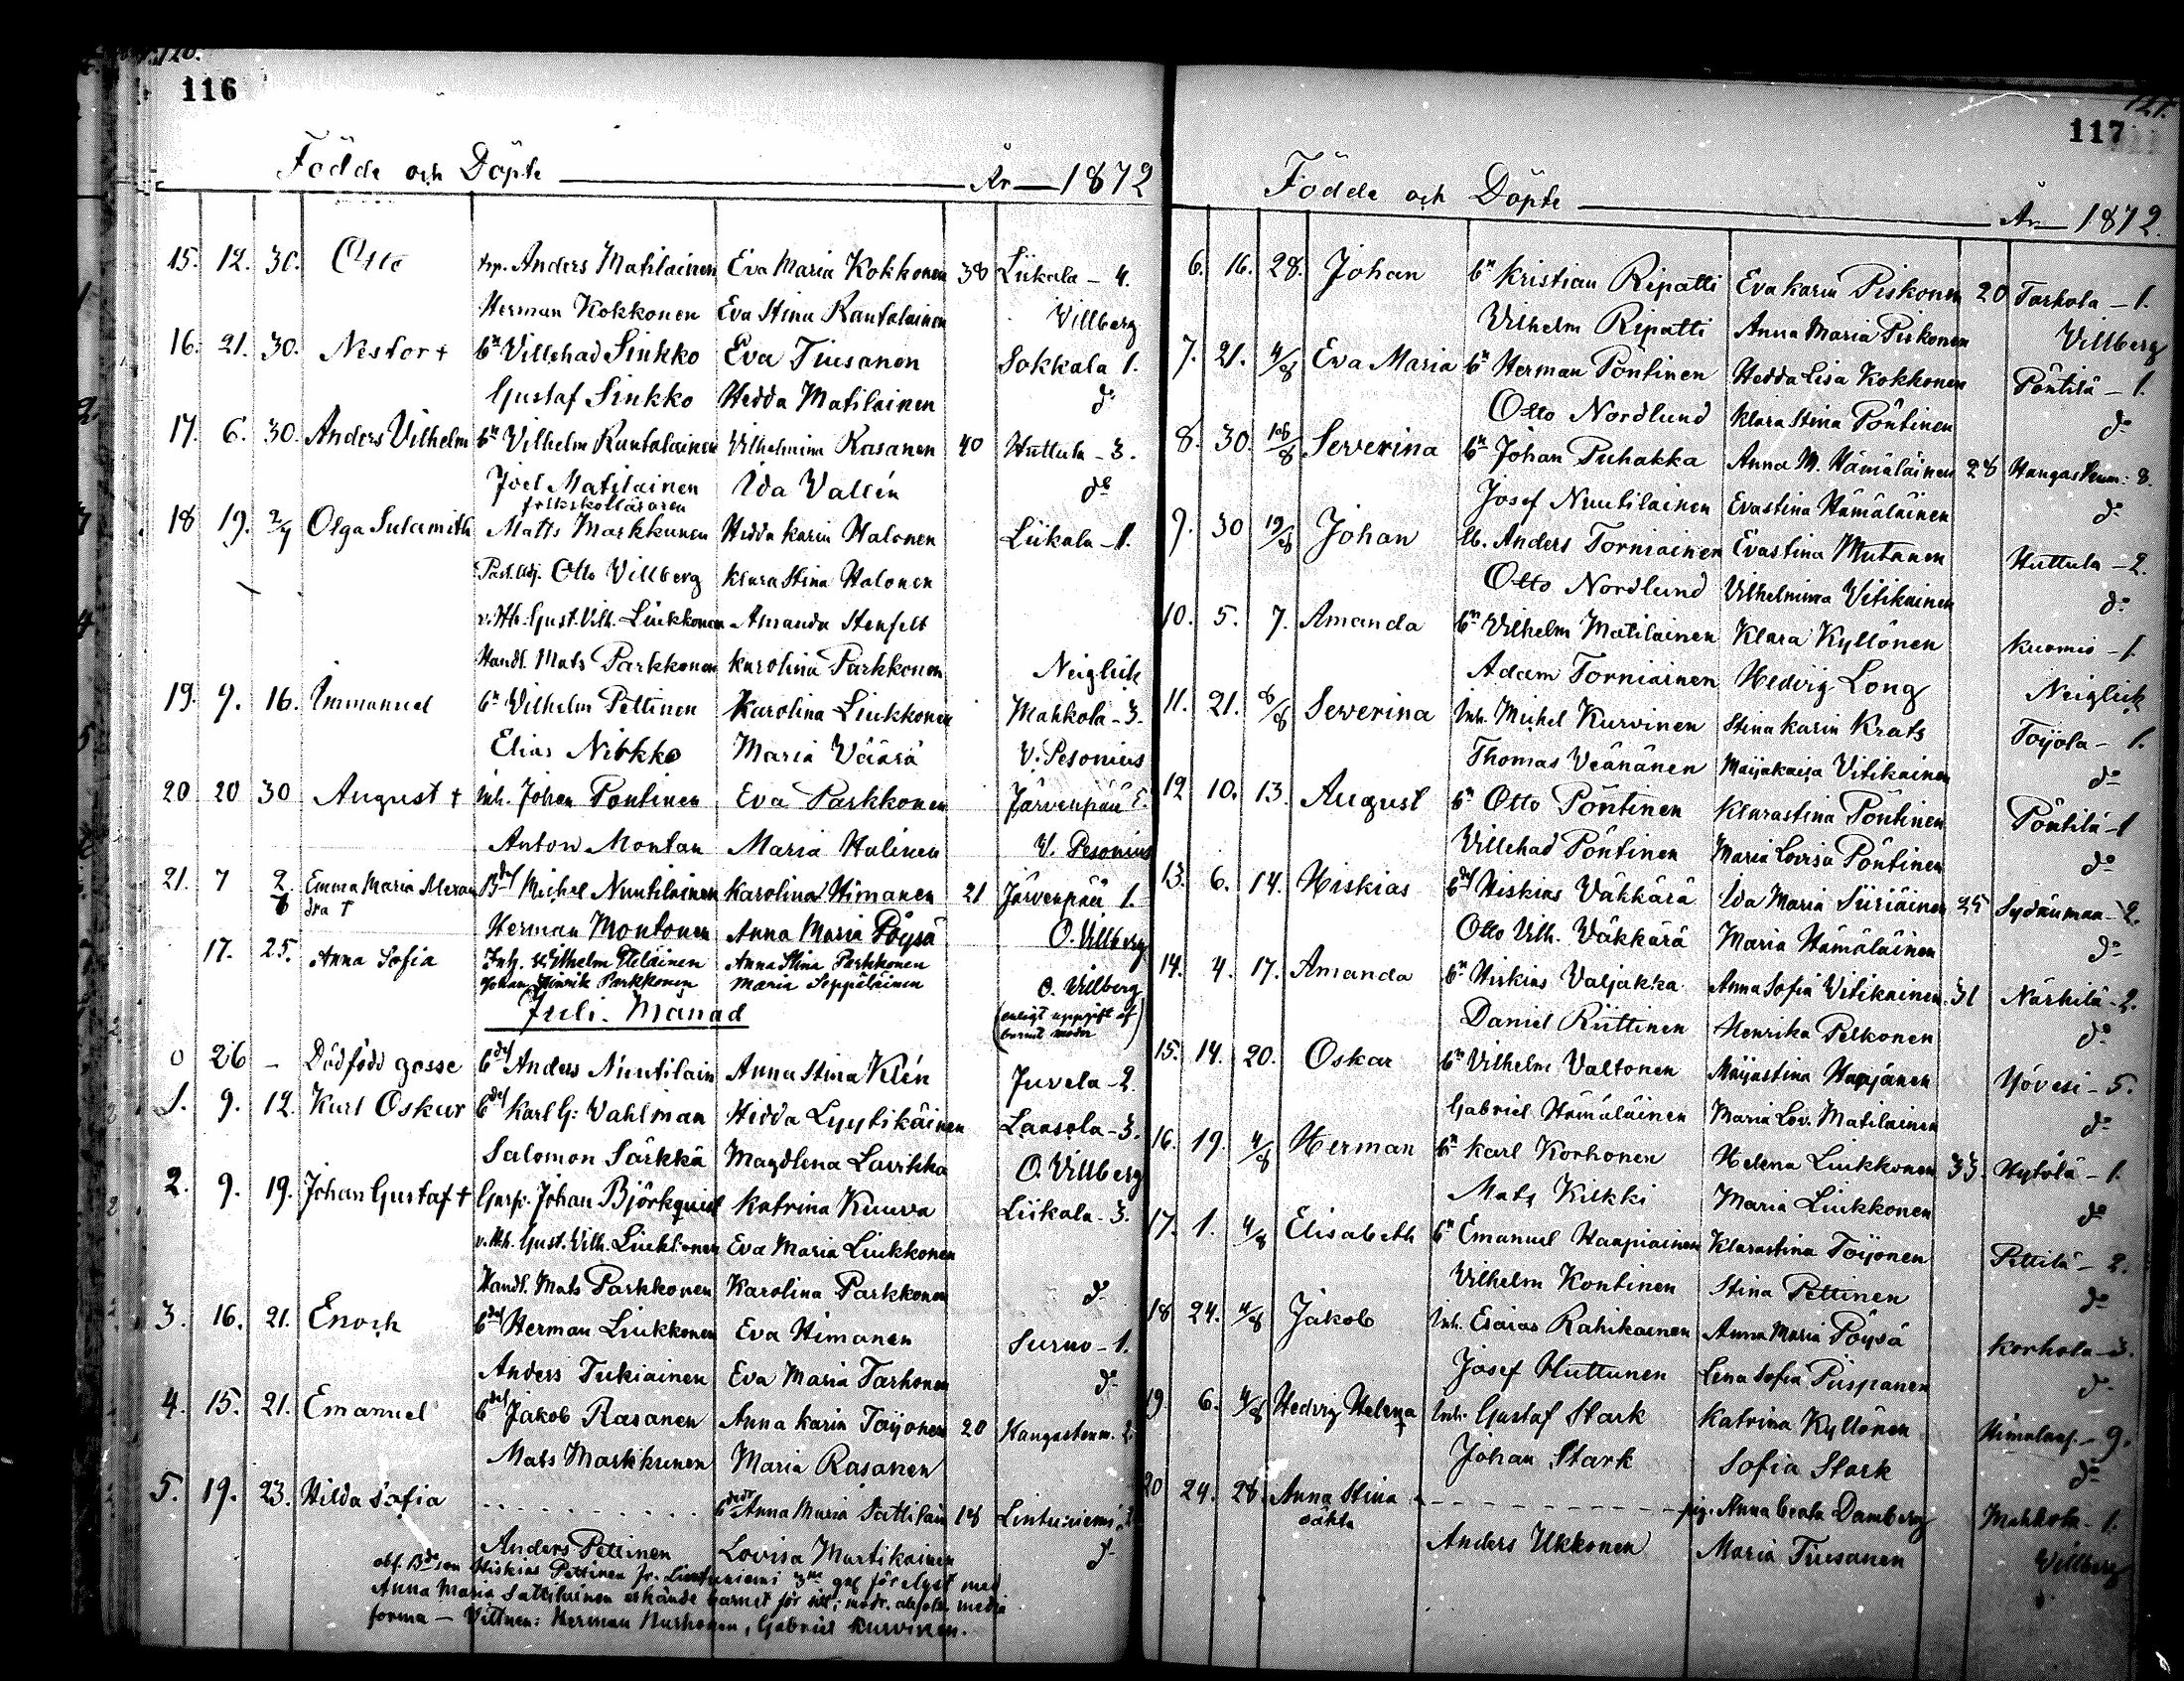 116
Födde och Döpte År 1872
15. 12. 30. Otto trp. Anders Matilainen Eva Maria Kokkonen 38 Liikala - 4.
Herman Kokkonen Eva Stina Rautalainen Villberg
16. 21. 30. Nestor + bn Villehad Sinkko Eva Tiusanen Sokkala 1.
Gustaf Sinkko Hedda Matilainen do
17. 6. 30. Anders Vilhelm bn Vilhelm Rautalainen Vilhelmina Rasanen 40 Huttula - 3.
Joel Matilainen Ida Vallén do
folkskolläraren
18 19. 2/7 Olga Sulamith Matts Markkunen Hedda Karin Halonen Liikala - 1.
Past. adj. Otto Villberg Klara Stina Halonen
v. Hh. Gust. Vilh. Liukkonen Amanda Stenfelt
Handl. Mats Parkkonen Karolina Parkkonen Neiglick
19. 9. 16. Immanuel bn Vilhelm Pettinen Karolina Liukkonen Mahkola - 3.
Elias Nirkko Maria Väärä V. Pesonius
20 20 30 August + Inh. Johan Pontinen Eva Parkkonen Järvenpää
Anton Montan Maria Halinen V. Pesonius
21. 7 2/8 Emma Maria Alexan Michel Nuutilainen Karolina Himanen 21 Järvenpää 1.
dra †
Herman Montonen Anna Maria Pöysä O. Villberg
17. 25. Anna Sofia Inh. Wilhelm Anna Stina Parkkonen
Johan Henrik Parkkonen Maria Seppäläinen O. Villberg
Juli. Månad (enligt uppgift af
barnets moder)
0 26 - Dödfödd gosse Anders Nuutilain Anna Stina Klén Juvela - 2.
1. 9. 12. Karl Oskar Karl G: Vahlman Hedda Lyytikäinen Laasola - 3.
Salomon Särkkä Magdlena Lavikka O. Villberg
2. 9. 19. Johan Gustaf + Garf. Johan Björkquist Katrina Kuuva Liikala - 3.
v. Hh. Gust. Vilh. Liukkonen Eva Maria Liukkonen
Handl. Mats Parkkonen Karolina Parkkonen do
3. 16. 21. Enoch Herman Liukkonen Eva Himanen Suruo - 1.
Anders Tukiainen Eva Maria Tarhonen do
4. 15. 21. Emanuel Jakob Rasanen Anna Karin Toijonen 20 Kangastenm. 2.
Mats Markkunen Maria Rasanen
5. 19. 23. Hilda Sofia - - - Anna Maria Sattilain 18 Lintuniemi
Anders Pettinen Lovisa Martikainen do
obf. Bdeson Hiskias Pettinen fr. Lintuniemi gg förelyst med
Anna Maria Sattilainen erkände barnet för sitt; modr. absolv. media
forma - Vittnen: Herman Nurhonen, Gabriel Kurvinen.
117
Födde och Döpte År 1872.
6. 16. 28. Johan bn Kristian Ripatti Eva Karin Piskonen 20 Tarhola - 1.
Vilhelm Ripatti Anna Maria Piskonen Villberg
7. 21. 4/8 Eva Maria bn Herman Pöntinen Hedda Lisa Kokkonen Pöntilä - 1.
Otto Nordlund Klara Stina Pöntinen do
8. 30. 18/8 Severina bn Johan Puhakka Anna M. Hämäläinen 28 Kangastenm: 8.
Josef Nuutilainen Evastina Hämäläinen do
9. 30 19/8 Johan lb. Anders Torniainen Evastina Mutanen Huttula - 2.
Otto Nordlund Vilhelmina Vitikainen do
10. 5. 7. Amanda bn Vilhelm Matilainen Klara Kyllönen Kuomio - 1
Adam Torniainen Hedvig Long Neiglick
11. 21. 8/8 Severina Inh. Michel Kurvinen Stina Karin Krats Toijola - 1.
Thomas Väänänen Maijakaisa Vitikainen do
12 10. 13. August bn Otto Pöntinen Klarastina Pöntinen Pöntilä - 1
Villehad Pöntinen Maria Lovisa Pöntinen do
13. 6. 14. Hiskias Hiskias Väkkärä Ida Maria Siiriäinen 25 Sydänmaa - 2.
Otto Vilh. Väkkärä Maria Hämäläinen do
14. 4. 17. Amanda bn Hiskias Valjakka Anna Sofia Vitikainen 31 Närhilä - 2.
Daniel Riittinen Henrika Pelkonen do
15. 14. 20. Oskar bn Vilhelm Valtonen Maijastina Haajanen Hövesi - 5.
Gabriel Hämäläinen Maria Lov. Matilainen do
16. 19. 4/8 Herman bn Karl Korhonen Helena Liukkonen 33. Hytölä - 1.
Mats Kilkki Maria Liukkonen do
17. 1. 4/8 Elisabeth bn Emanuel Haapiainen Klarastina Toijonen Pettilä - 2.
Vilhelm Kontinen Stina Pettinen do
18 24. 4/8 Jakob Inh. Esaias Rahikainen Anna Maria Pöysä Korhola - 3.
Josef Huttunen Lena Sofia Piispanen do
19. 6. 4/8 Hedvig Helena † Inh. Gustaf Stark Katrina Kyllönen - 9.
Johan Stark Sofia Stark do
20 24. 28. Anna Stina - - - pig. Anna Beata Damberg Mahkola - 1.
oäkta
Anders Ukkonen Maria Tiusanen Villberg